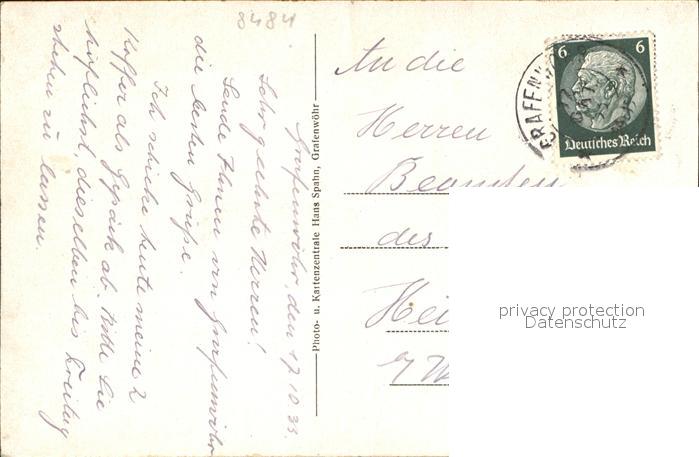 8484
Grafenwöhr, den 17.10.33.
Sehr geehrte Herren!
Sende Ihnen von Grafenwöhr
die besten Grüße.
Ich schicke heute meine 2
Koffer als Gepäck ab. Bitte Sie
höflichst, dieselben bis Freitag
stehen zu lassen.
Photo- u. Kartenzentrale Hans Spahn, Grafenwöhr
An die
Herren
Beamten
des
Hei
6 6
Deutsches Reich
GRAFENWÖ
privacy protection
Datenschutz